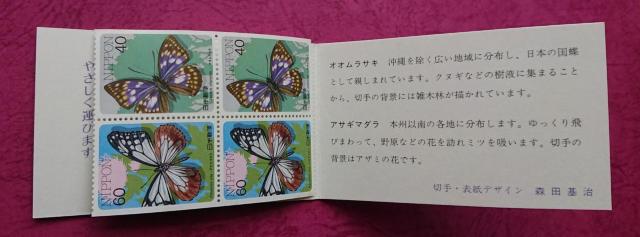 やさしく運びます
NIPPON 40
NIPPON 40
NIPPON 60
NIPPON 60
オオムラサキ 沖縄を除く広い地域に分布し、日本の国蝶
として親しまれています。クヌギなどの樹液に集まること
から、切手の背景には雑木林が描かれています。
アサギマダラ 本州以南の各地に分布します。ゆっくり飛
びまわって、野原などの花を訪れミツを吸います。切手の
背景はアザミの花です。
切手・表紙デザイン 森田基治